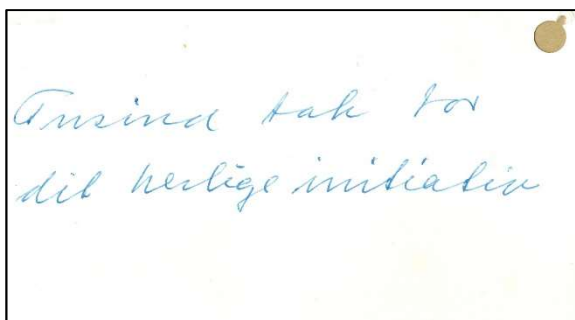 Tusind tak for
dit herlige initiativ